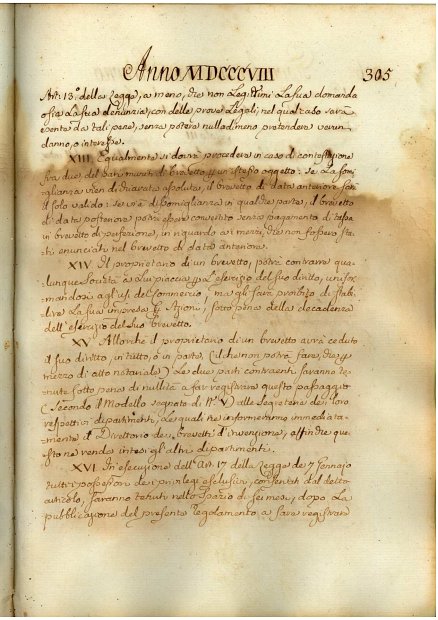 Anno MDCCCVIII 305
Art: 13.° della Legge, a meno, che non Legittimi La sua domanda
o sia La sua denunzia, con delle prove Legali; nel qual caso sarà
esente da tali pene, senza potere nulladimeno pretendere verun
danno, o interesse.
XIII. Egualmente si dovrà procedere in caso di contestazione
fra due, del pari muniti di brevetto p un istesso oggetto: se La somi
glianza vien dichiarata assoluta, il brevetto di data anteriore sarà
il solo valido: se vi è somiglianza in qualche parte, il brevetto
di data posteriore potrà essere convertito senza pagamento di tassa
in brevetto di perfezione, in riguardo ai mezzi, che non fossero sta
ti enunciati nel brevetto di data anteriore.
XIV. Il proprietario di un brevetto, potrà contrarre qua
lunque Società a Lui piaccia p L'esercizio del suo diritto, unifor
mandosi agl'usi del Commercio; ma gli sarà proibito di stabi
lire La sua impresa p Azioni, sotto pena della decadenza
dell'esercizio del suo brevetto.
XV. Allorchè il proprietario di un brevetto avrà ceduto
il suo diritto, in tutto, o in parte, (il che non potrà fare, che p
mezzo di atto notariale) Le due parti contraenti saranno te
nute sotto pena di nullità a far registrare questo passaggio
(Secondo il Modello segnato di N.° V) alle Segreterie dei Loro
respettivi dipartimenti, Le quali ne informeranno immediata
mente il Direttorio de' brevetti d'invenzione, affinche que
sto ne renda intesi gl'altri dipartimenti.
XVI. In esecuzione dell'Art. 17 della Legge de' 7 Gennajo
tutti i possessori de' privilegj esclusivi, consentiti dal detto
articolo, saranno tenuti nello spazio di sei mesi, dopo La
pubblicazione del presente regolamento a fare registrare